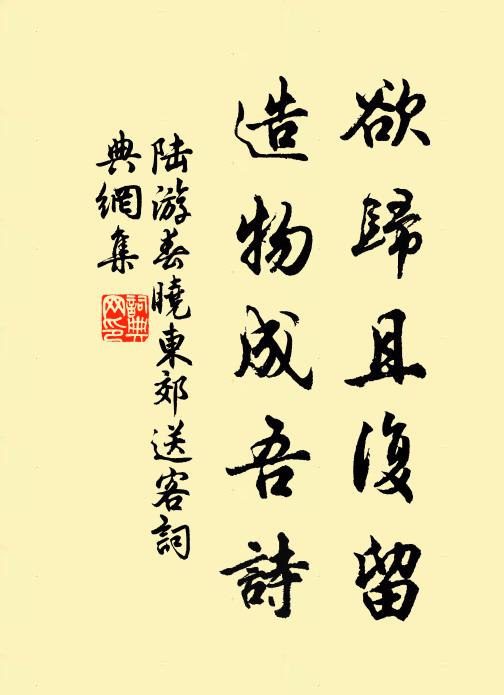 欲歸且復留
造物成吾詩
陸游春曉東郊送客詞
典網集
詞典網印